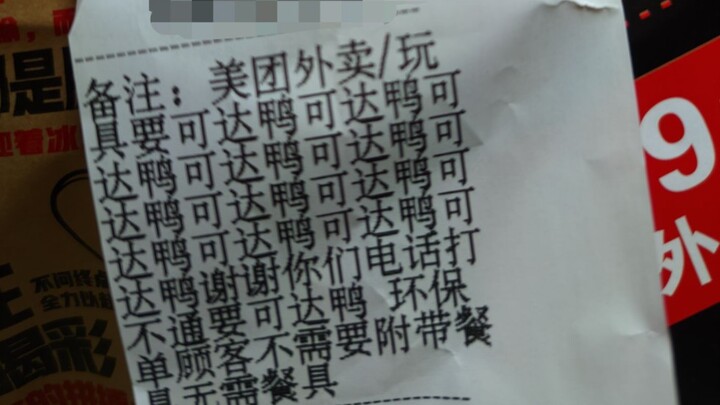 备注：美团外卖/玩
具要可达鸭可达鸭可
达鸭可达鸭可达鸭可
达鸭可达鸭可达鸭可
达鸭可达鸭可达鸭可
达鸭谢谢你们电话打
不通要可达鸭 环保
单顾客不需要附带餐
具无需餐具
9
外
不同终点